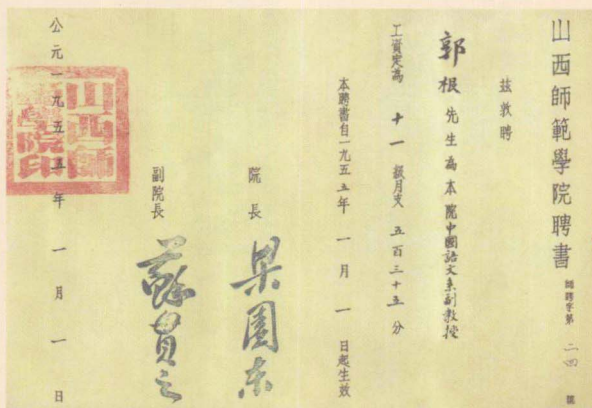 山西師範學院聘書
師聘字第 二四 號
茲敦聘
郭根先生為本院中國語文系副教授
工資定為 十一 級月支 五百三十五 分
本聘書自一九五五年 一 月 一 日起生效
院長 梁園東
副院長 蘇貫之
公元一九五五年 一 月 一 日
山西師範學院印